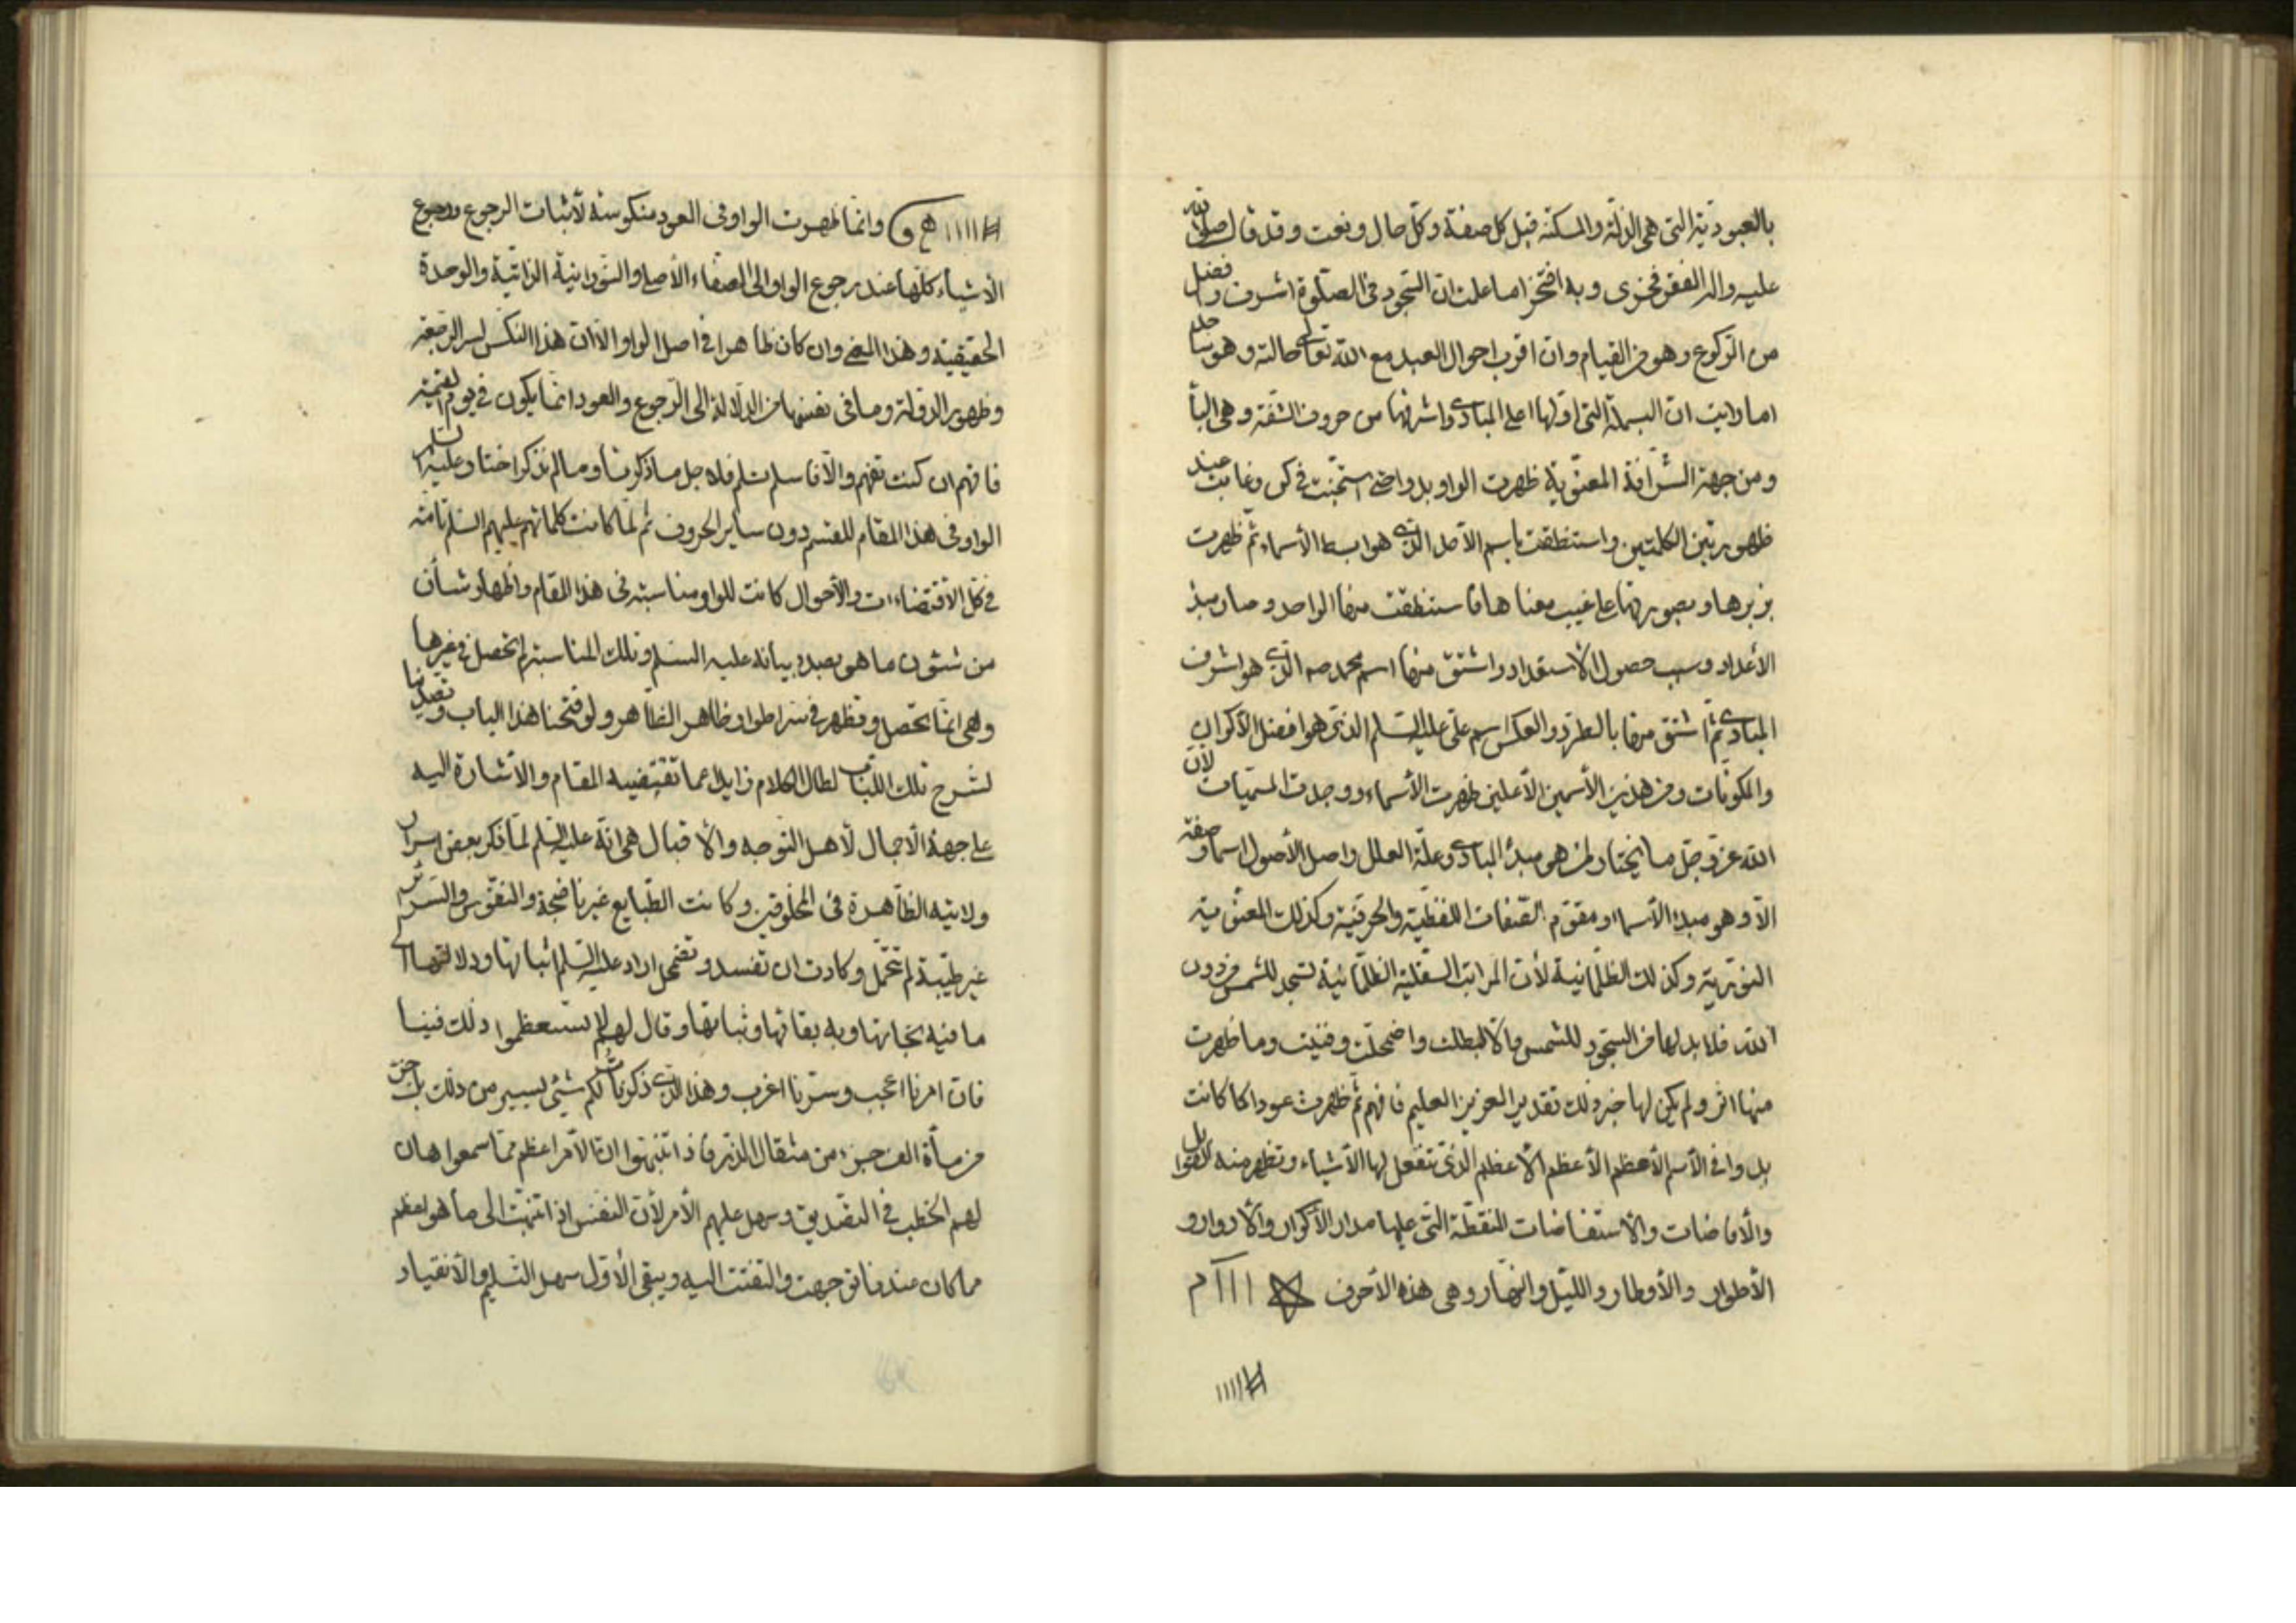 بالعبودية التي هي الذلة والمسكنة قبل كل صفة وكل حال ونعت وقد قال صلى الله
عليه واله الفقر فخري وبه افتخر اما علمت ان السجود في الصلوة اشرف وافضل
من الركوع وهو من القيام وان اقرب احوال العبد مع الله تعالى حالته وهو ساجد
اما رايت ان البسملة التي اولها اعلى المبادي واشرفها من حروف الشفة وهي الباء
ومن جهة الشرافة المعنوية ظهرت الواو بل واضح استجنت في كن وغابت عند
ظهور تين الكلمتين واستنطقت باسم الاصل الذي هو ابسط الأسماء ثم ظهرت
بزبرها وبصورتها على غيب معناها فاستنطقت منها الواحد وصار مبدء
الأعداد وسبب حصول الاستعداد واشتق منها اسم محمد صه الذي هو اشرف
المبادي ثم اشتق منها بالطرد والعكس اسم علي عليه السلم الذي هو افضل الأكوان
والمكونات ومن هذين الأسمين الأعلين ظهرت الأسماء ووجدت المسميات لان
الله عز وجل ما يختار لمن هو مبدء المبادي وعلة العلل واصل الأصول اسما وصفة
الا وهو مبدء الأسماء ومقوم الصفات اللفظية والحرفية وكذلك المعنوية
النورية وكذلك الظلمانية لأن المراتب السفلية الظلمانية تسجد للشمس من دون
الله فلا بد لها من السجود للشمس والا لبطلت واضمحلت وفنيت وما ظهرت
منها اثر ولم يكن لها خبر ذلك تقدير العزيز العليم فافهم ثم ظهرت عودا كما كانت
بل وا في الأسم الأعظم الأعظم الأعظم الذي تنفعل لها الأشياء وتظهر منه القوابل
والأفاضات والأستفاضات النقطة التي عليها مدار الأكوار والأدوار و
الأطوار والأوطار والليل والنهار وهي هذه الأحرف ااا م
# ااااا
# اااا ھ و وانما ظهرت الواو في العود منكوسة لأثبات الرجوع ورجوع
الأشياء كلها عند رجوع الواو الى الصفاء الأصلي والنورانية الذاتية والوحدة
الحقيقية وهذا المعنى وان كان ظاهرا في اصل الواو الا ان هذا النكس لسر الرجعة
وظهور الدولة وما في نفسها من الدلالة الى الرجوع والعود انما يكون في يوم القيمة
فافهم ان كنت تفهم والا فاسلم تسلم فلاجل ما ذكرنا وما لم نذكر اختار عليه السلم
الواو في هذا المقام للقسم دون ساير الحروف ثم لما كانت كلماتهم عليهم السلم تامة
في كل الأقتضاءات والأحوال كانت للواو مناسبة في هذا المقام واظهار شأن
من شئون ما هو بصدد بيانه عليه السلم وتلك المناسبة لم تحصل في غيرها
وهي انما تحصل وتظهر في ستر اطوار ظاهر الظاهر ولو فتحنا هذا الباب وتصدينا
لشرح تلك اللباب لطال الكلام زايدا عما تقتضيه المقام والأشارة اليه
على جهة الأجمال لأهل التوجه والأقبال هي انه عليه السلم لما ذكر بعض اسرار
ولايته الظاهرة في المخلوقين وكانت الطبايع غير ناضجة والنفوس والسرائر
غير طيبة لم تتحمل وكادت ان تفسد وتضمحل اراد عليه السلم اثباتها ودلالتها الى
ما فيه نجاتها وبه بقائها وثباتها وقال لهم لا تستعظموا ذلك فينا
فان امرنا اعجب وسرنا اغرب وهذا الذي ذكرنا لكم شيئ يسير من ذلك بل جزء
من مأة الف جزء من مثقال الذر فاذا انتبهوا ان الأمر اعظم مما سمعوا هان
لهم الخطب في التصديق وسهل عليهم الأمر لأن النفس اذا انتبهت الى ما هو اعظم
مما كان عندها توجهت والتفتت اليه ويبقى الأول سهل التسليم والأنقياد